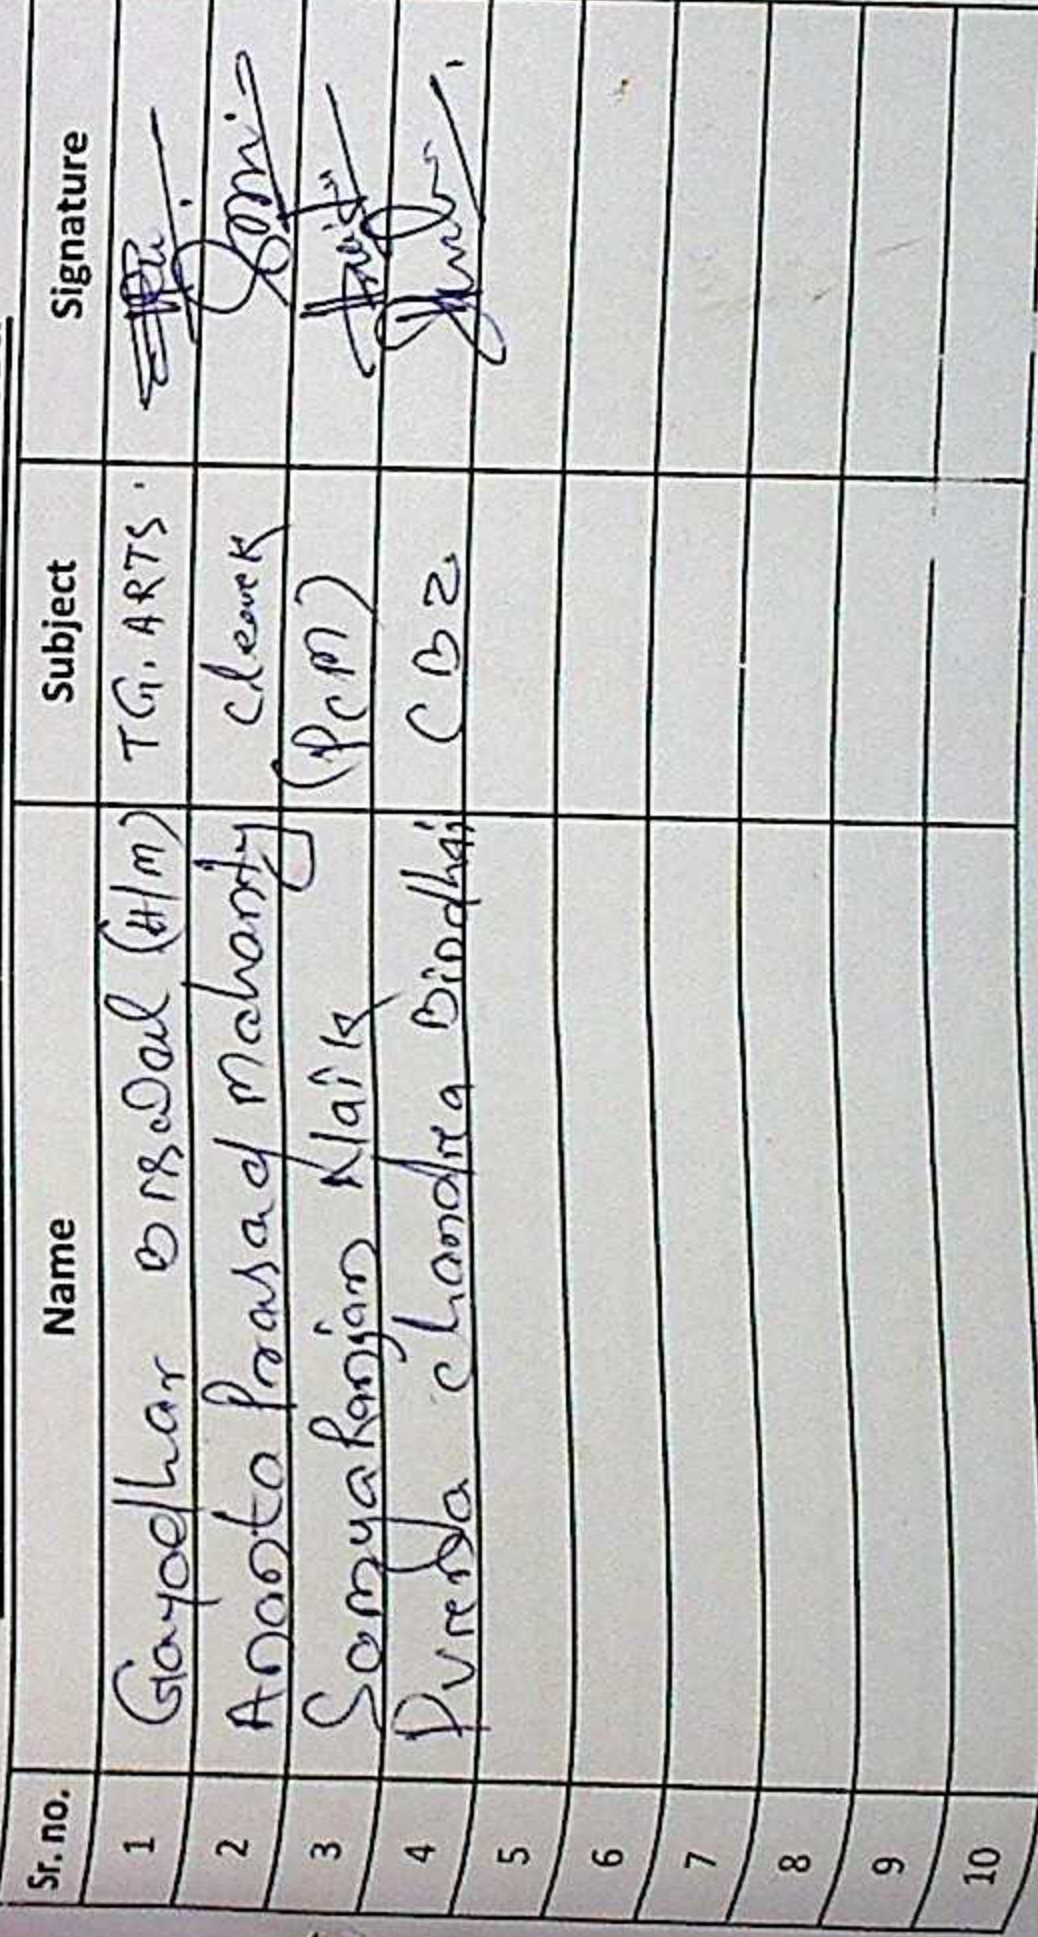 Sr. no. Name Subject Signature
1 Gayadhar Bisoal (H/M) TG. ARTS.
2 Ananta Prasad Mohanty Clerk
3 Somya Ranjan Naik (PCM)
4 Purna Chandra Bindhani CBZ
5
6
7
8
9
10